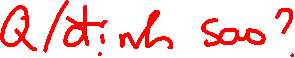 Q/định sao?